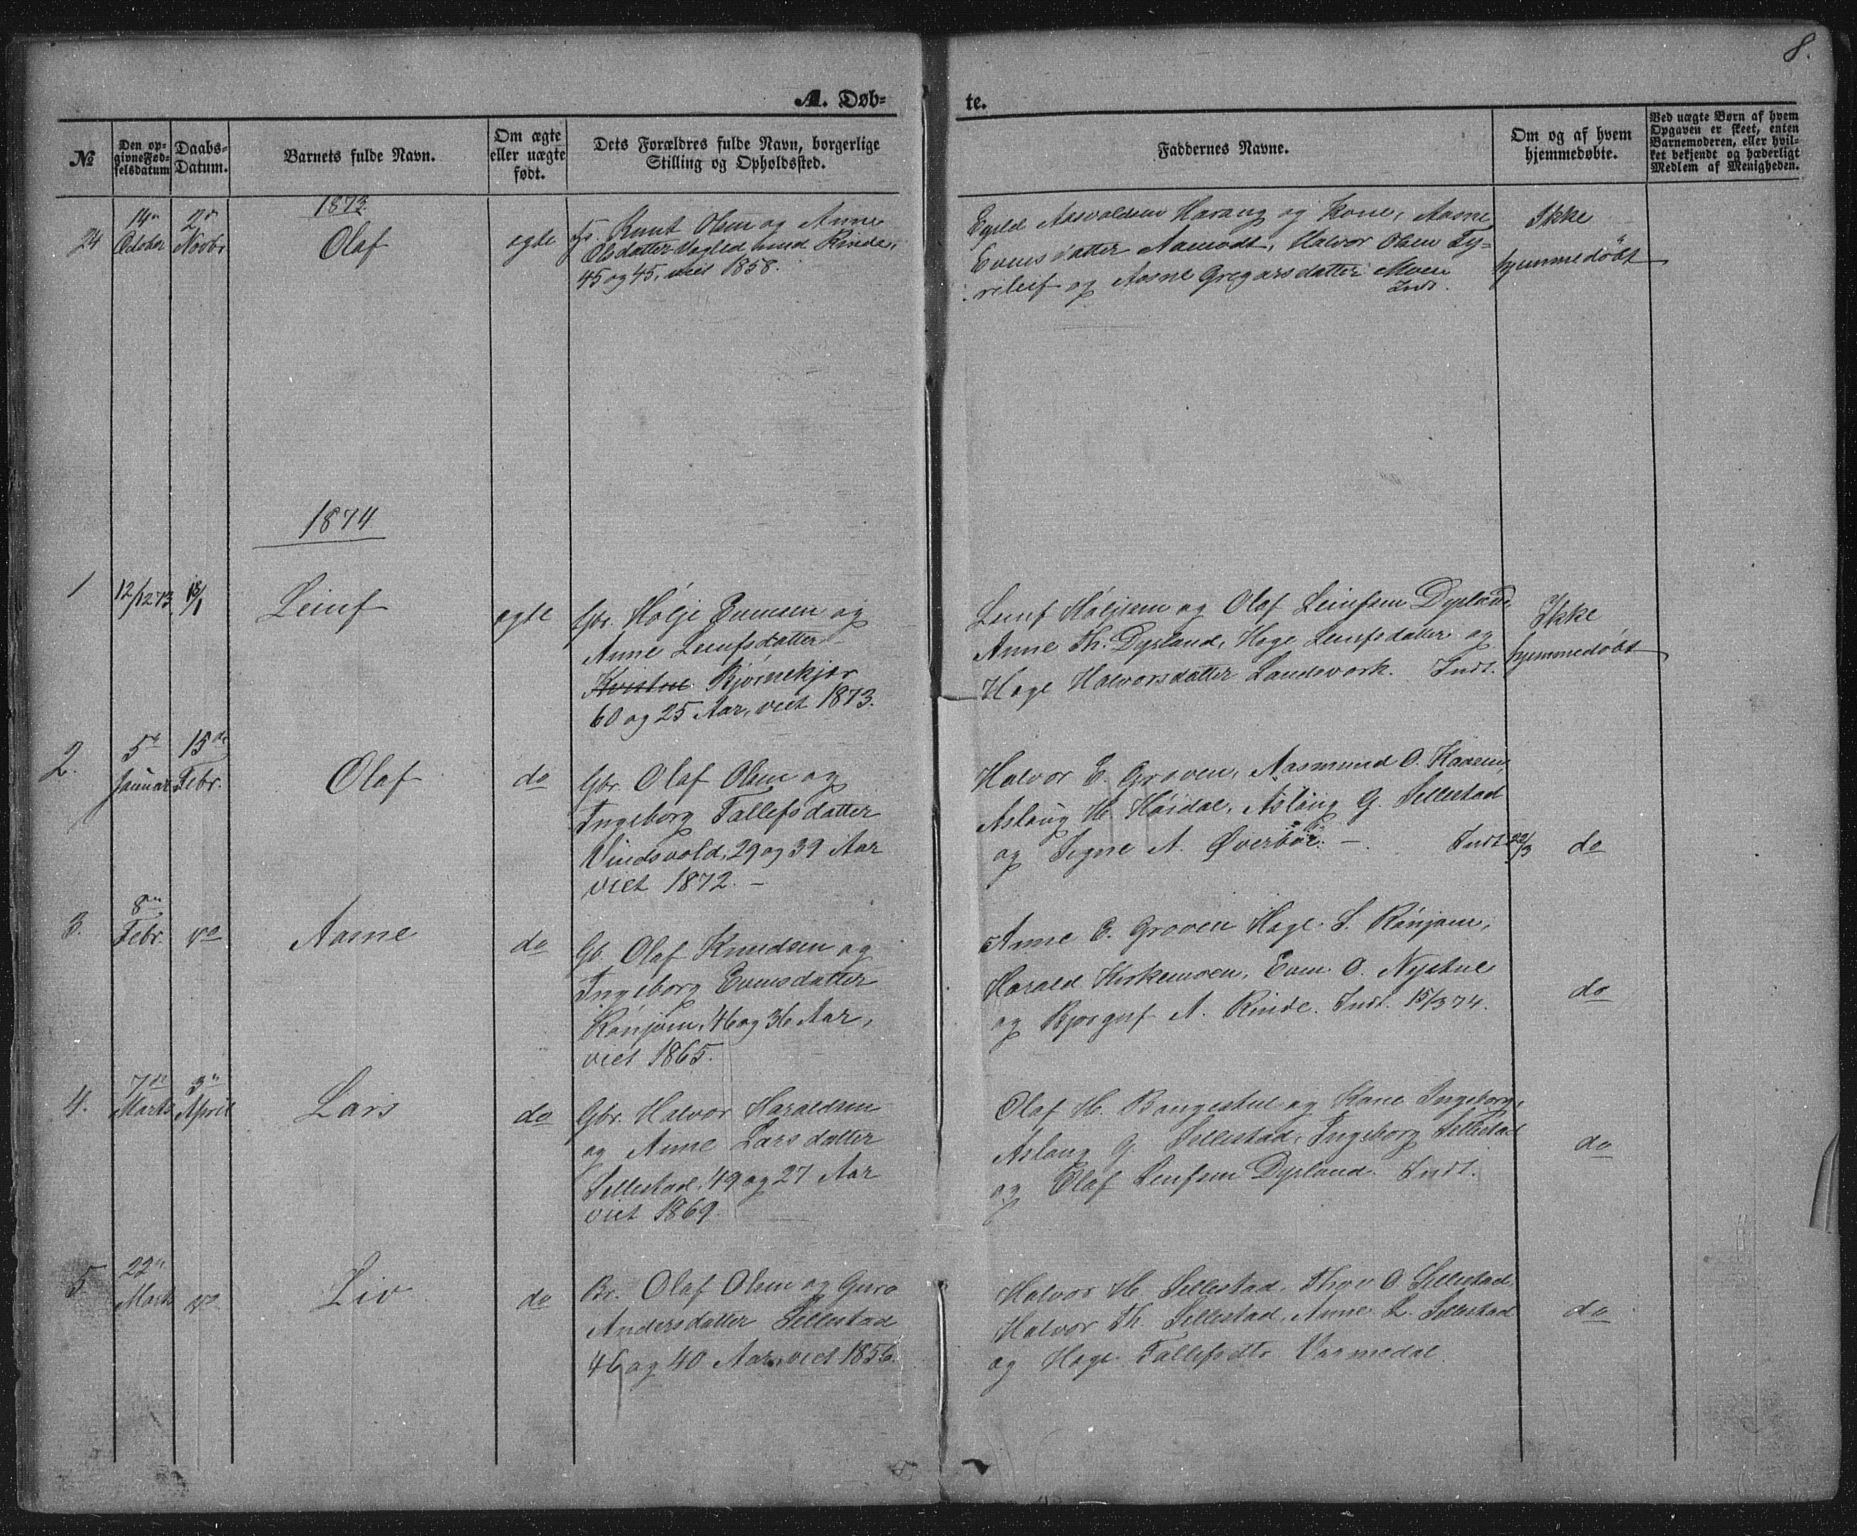 8.
A. Døb- te.
№
Den opgivne Fødselsdatum
Daabs-Datum.
Barnets fulde Navn.
Om ægte eller uægte født.
Dets Forældres fulde Navn, borgerlige Stilling og Opholdssted.
Faddernes Navne.
Om og af hvem hjemmedøbte.
Ved uægte Børn af hvem Opgaven er skeet, enten Barnemoderen, eller hvilket bekjendt og hæderligt Medlem af Menigheden.
1873
24
14de October
2den Novbr
Olaf
egte
Knut Olsen og Anne
Olsdatter Rinde,
45 og 45, viet 1858.
Aasvoldsen Harang og Kone, Aasne
Evensdatter Aamodt, Halvor Olsen Ty-
releif og Aasne Gregarsdatter Moen
Indt.
Ikke
hjemmedøbt
1874
1
12/12 73
18/1
Leiuf
egte
Gbr. Hølje Evensen og
Anne Leiufsdatter
Bjørnekjør
60 og 25 Aar, viet 1873.
Leiuf Høljesen og Olaf Leiufsen Dyrland,
Anne Th. Dyrland, Hæge Leiufsdatter og
Hæge Halvorsdatter Landsverk. Indt.
Ikke
hjemmedøbt
2.
5te Januar
15de Febr.
Olaf
do
Gbr. Olaf Olsen og
Ingeborg Tallefsdatter
Vindsvold, 29 og 39 Aar
viet 1872. –
Halvor E. Groven, Aasmund O.
Aslaug H. Høidal, Aslaug G. Sellestad
og Signe A. Øverbøe. – Indt 22/3
do
3.
8de Febr.
do
Aasne
do
Gb. Olaf Knudsen og
Ingeborg Evensdatter
Rønjom, 46 og 36 Aar,
viet 1865.
Anne E. Groven Hæge S. Rønjom,
Harald Kirkemoen, Even O. Nystul
og Bjørguf A. Rinde. Indt. 15/3 74.
do
4.
7de Marts
3de April
Lars
do
Gbr. Halvor Haraldsen
og Anne Larsdatter
Sellestad, 49 og 27 Aar
viet 1869.
Olaf H. Bangestul og Kone Ingeborg,
Aslaug G. Sellestad, Ingeborg Sellestad
og Olaf Leiufsen Dyrland. Indt.
do
5
22de Marts
do
Liv
do
Br. Olaf Olsen og Guro
Andersdatter Sellestad
46 og 40 Aar, viet 1856.
Halvor H. Sellestad, Thor O. Sellestad,
Halvor Th. Sellestad, Anne L. Sellestad
og Hæge Tallefsdtr Varmedal.
do